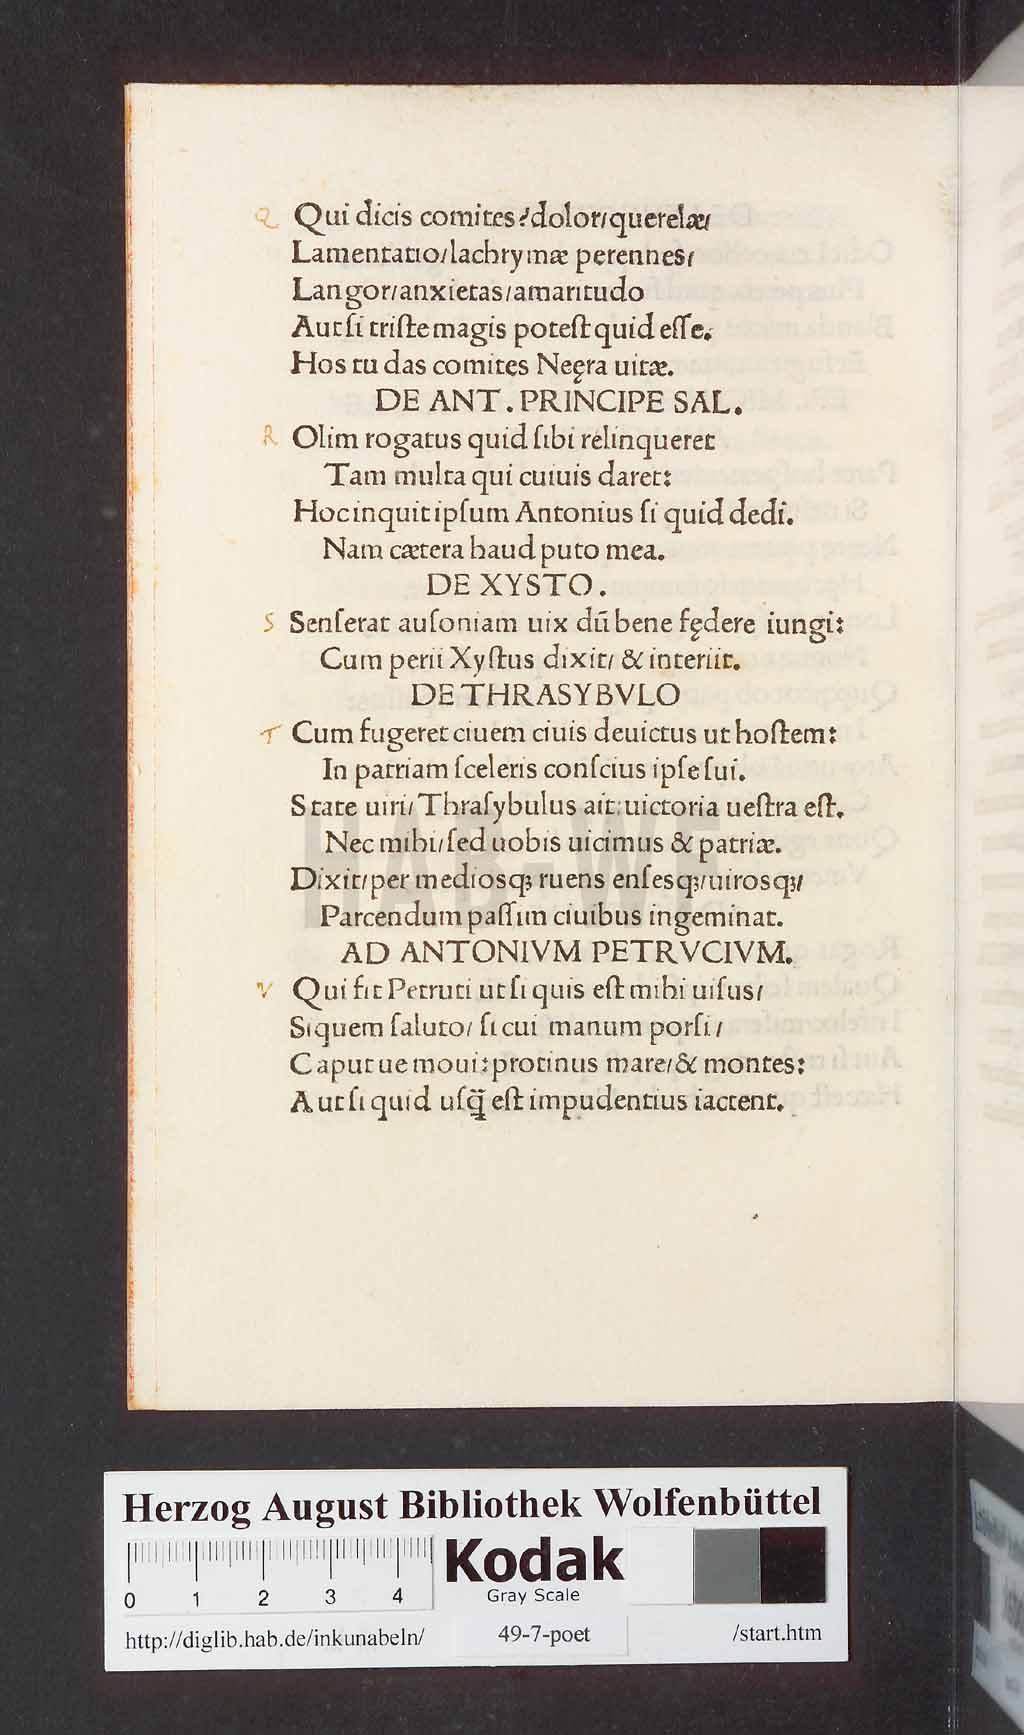 Q Qui dicis comites?dolor/querelæ/
Lamentatio/lachrymæ perennes/
Langor/anxietas/amaritudo
Aut ſi triſte magis poteſt quid eſſe.
Hos tu das comites Neęra uitæ.
DE ANT. PRINCIPE SAL.
R Olim rogatus quid ſibi relinqueret
Tam multa qui cuiuis daret:
Hoc inquit ipſum Antonius ſi quid dedi.
Nam cætera haud puto mea.
DE XYSTO.
S Senſerat auſoniam uix dū bene fędere iungi:
Cum perii Xyſtus dixit/ & interiit.
DE THRASYBVLO
T Cum fugeret ciuem ciuis deuictus ut hoſtem:
In patriam ſceleris conſcius ipſe ſui.
State uiri/ Thraſybulus ait: uictoria ueſtra eſt.
Nec mihi/ſed uobis uicimus & patriæ.
Dixit/per mediosqꝫ ruens enſesqꝫ/uirosqꝫ/
Parcendum paſſim ciuibus ingeminat.
AD ANTONIVM PETRVCIVM.
V Qui fit Petruti ut ſi quis eſt mihi uiſus/
Siquem ſaluto/ ſi cui manum porſi/
Caput ue moui: protinus mare/& montes:
Aut ſi quid uſq̄ eſt impudentius iactent.
HAB-WF
Herzog August Bibliothek Wolfenbüttel
0 1 2 3 4
Kodak
Gray Scale
http://diglib.hab.de/inkunabeln/ 49-7-poet /start.htm